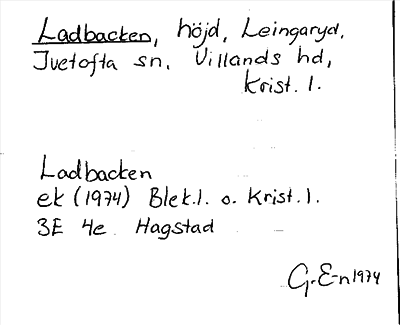 Ladbacken, höjd, Leingaryd,
Ivetofta sn, Villands hd,
Krist. l.
Ladbacken
ek (1974) Blek.l. o. Krist.l.
3E 4e Hagstad
G. E-n 1974